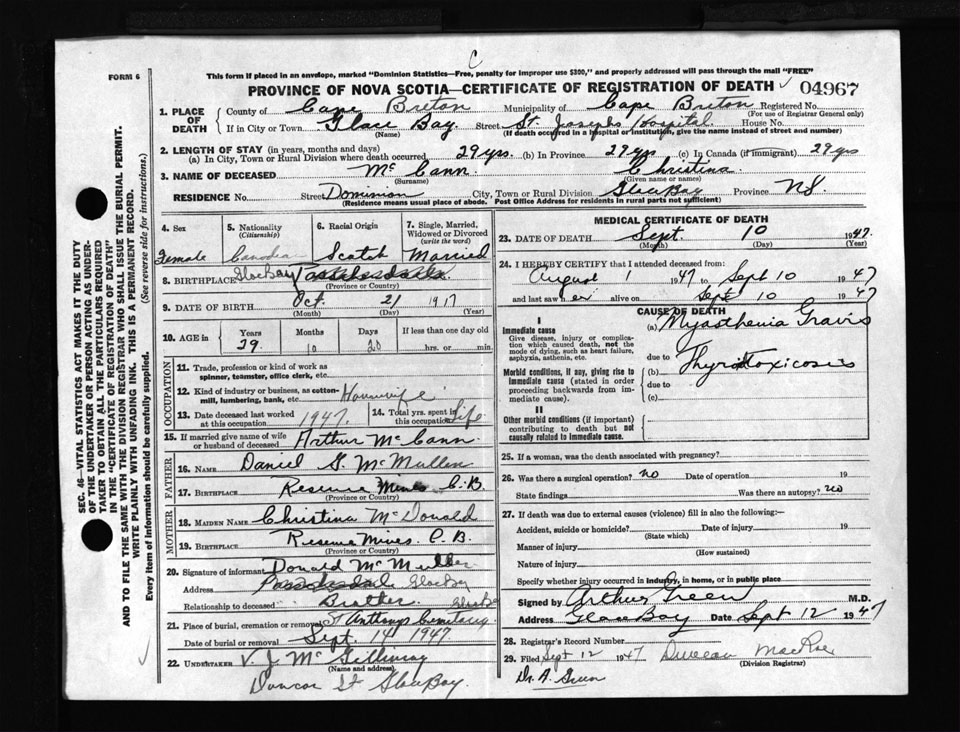 C
FORM 6
This form if placed in an envelope, marked "Dominion Statistics—Free, penalty for improper use $300," and properly addressed will pass through the mail "FREE"
PROVINCE OF NOVA SCOTIA—CERTIFICATE OF REGISTRATION OF DEATH 04967
1. PLACE OF DEATH
County of Cape Breton Municipality of Cape Breton Registered No.
(For use of Registrar General only)
If in City or Town Glace Bay Street St. Josephs Hospital House No.
(Name) (If death occurred in a hospital or institution, give the name instead of street and number)
2. LENGTH OF STAY (in years, months and days)
(a) In City, Town or Rural Division where death occurred 29 yrs. (b) In Province 29 yrs (c) In Canada (if immigrant) 29 yrs
3. NAME OF DECEASED Mc Cann Christina
(Surname) (Given name or names)
RESIDENCE No. Street Dominion City, Town or Rural Division Glace Bay Province NS
(Residence means usual place of abode. Post Office Address for residents in rural parts not sufficient)
4. Sex
Female
5. Nationality
(Citizenship)
Canadian
6. Racial Origin
Scotch
7. Single, Married, Widowed or Divorced
(write the word)
Married
8. BIRTHPLACE Glace Bay
(Province or Country)
9. DATE OF BIRTH Oct. 21 1917
(Month) (Day) (Year)
10. AGE in
Years Months Days If less than one day old
29. 10 20 hrs. or min.
OCCUPATION
11. Trade, profession or kind of work as spinner, teamster, office clerk, etc.
12. Kind of industry or business, as cotton-mill, lumbering, bank, etc. Housewife
13. Date deceased last worked at this occupation 1947.
14. Total yrs. spent in this occupation life
15. If married give name of wife or husband of deceased Arthur Mc Cann.
FATHER
16. NAME Daniel G. McMullin
17. BIRTHPLACE Reserve Mines C.B
(Province or Country)
MOTHER
18. MAIDEN NAME Christina McDonald
19. BIRTHPLACE Reserve Mines. C.B.
(Province or Country)
20. Signature of informant Donald McMullin
Address Glace Bay
Relationship to deceased Brother
21. Place of burial, cremation or removal St Anthony Cemetary Glace Bay
Date of burial or removal Sept. 14 1947.
22. UNDERTAKER V. J. McGillivray
(Name and address)
St Glace Bay.
MEDICAL CERTIFICATE OF DEATH
23. DATE OF DEATH Sept. 10 1947.
(Month) (Day) (Year)
24. I HEREBY CERTIFY that I attended deceased from:
August 1 1947 to Sept 10 1947
and last saw her alive on Sept 10 1947
CAUSE OF DEATH
I
Immediate cause
Give disease, injury, or complication which caused death, not the mode of dying, such as heart failure, asphyxia, asthenia, etc.
(a) Myasthenia Gravis
due to
Morbid conditions, if any, giving rise to immediate cause (stated in order proceeding backwards from immediate cause).
(b) Thyrotoxicosis
due to
(c)
II
Other morbid conditions (if important) contributing to death but not causally related to immediate cause.
25. If a woman, was the death associated with pregnancy?
26. Was there a surgical operation? no Date of operation 19
State findings Was there an autopsy? no
27. If death was due to external causes (violence) fill in also the following:—
Accident, suicide or homicide? Date of injury 19
(State which)
Manner of injury
(How sustained)
Nature of injury
Specify whether injury occurred in industry, in home, or in public place
Signed by Arthur Green M.D.
Address Glace Bay Date Sept 12 1947
28. Registrar's Record Number
29. Filed Sept 12 1947 Duncan MacRae
(Division Registrar)
Dr. A. Green
SEC. 46—VITAL STATISTICS ACT MAKES IT THE DUTY
OF THE UNDERTAKER OR PERSON ACTING AS UNDER-
TAKER TO OBTAIN ALL THE PARTICULARS REQUIRED
IN THE "CERTIFICATE OF REGISTRATION OF DEATH"
AND TO FILE THE SAME WITH THE DIVISION REGISTRAR WHO SHALL ISSUE THE BURIAL PERMIT.
WRITE PLAINLY WITH UNFADING INK. THIS IS A PERMANENT RECORD.
Every item of information should be carefully supplied. (See reverse side for instructions.)